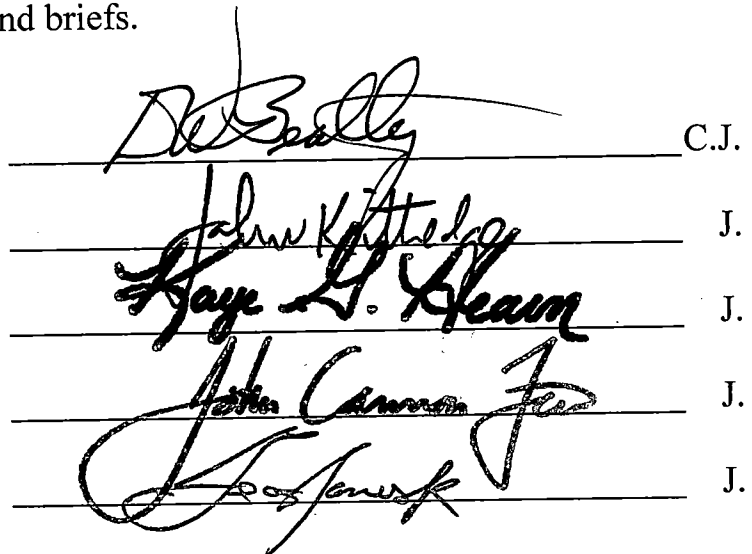 nd briefs.
DW Beatty C.J.
John Kittredge J.
Kaye G. Hearn J.
John Cannon Few J.
J.